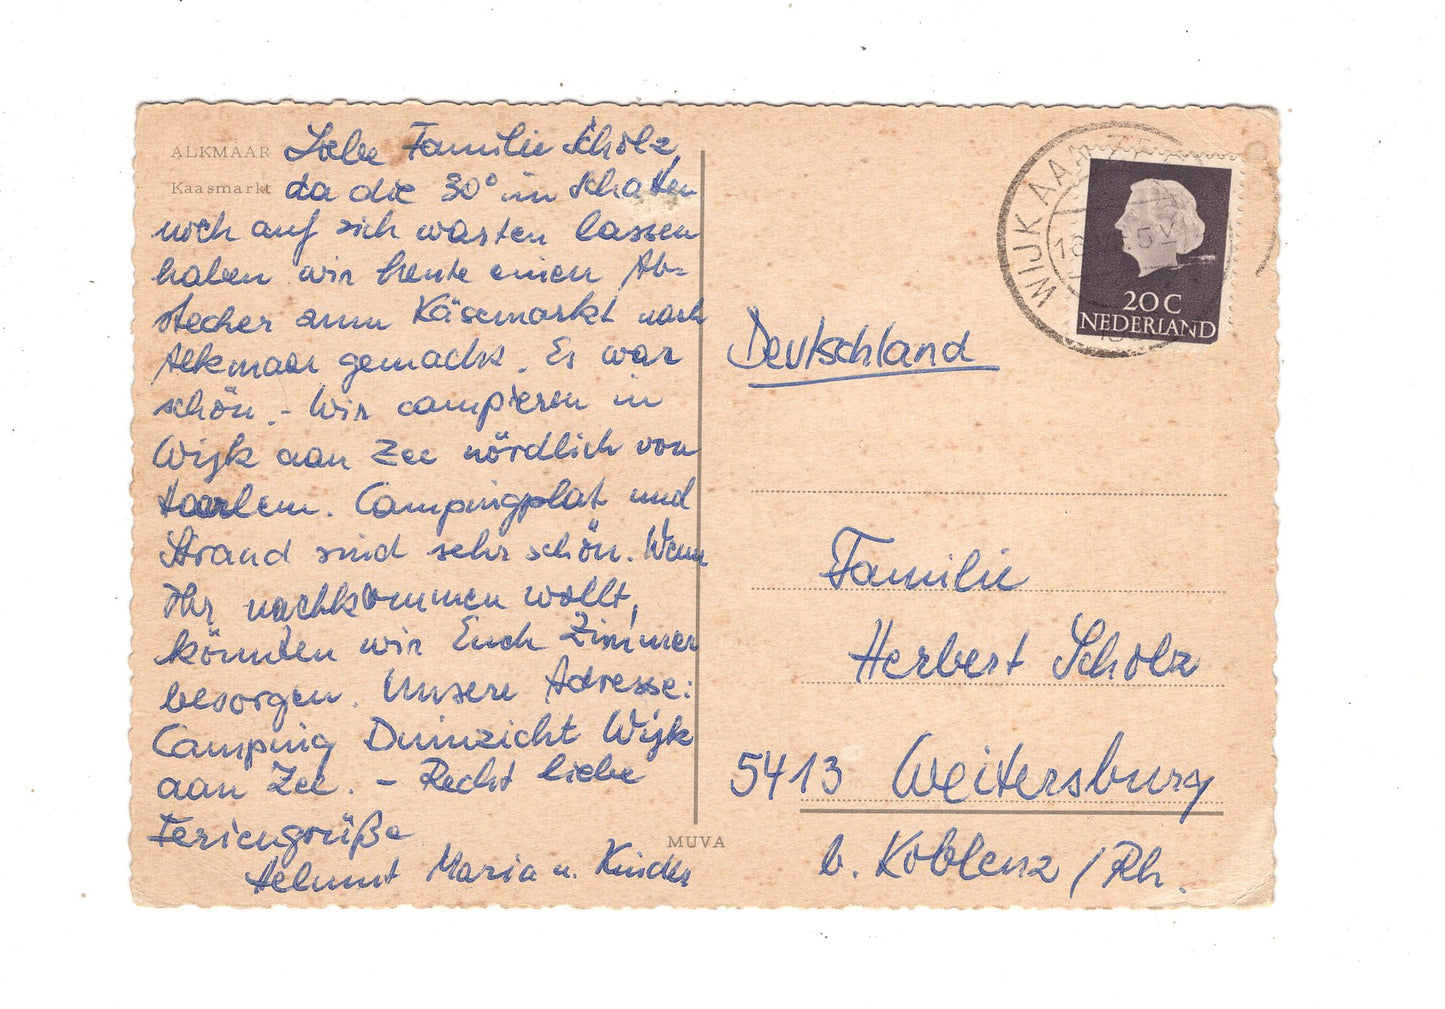 ALKMAAR
Kaasmarkt
Liebe Familie Scholz,
da die 30° im Schatten
noch auf sich warten lassen
haben wir heute einen Ab=
stecher zum Käsemarkt nach
Alkmaar gemacht. Es war
schön. - Wir campieren in
Wijk aan Zee nördlich von
Haarlem. Campingplat und
Strand sind sehr schön. Wenn
Ihr nachkommen wollt,
könnten wir Euch Zimmer
besorgen. Unsere Adresse:
Camping Duinzicht Wijk
aan Zee. - Recht liebe
Feriengrüße
Helmut Maria u. Kinder
MUVA
WIJK AAN
16
20 C
NEDERLAND
Deutschland
Familie
Herbert Scholz
5413 Weitersburg
b. Koblenz / Rh.